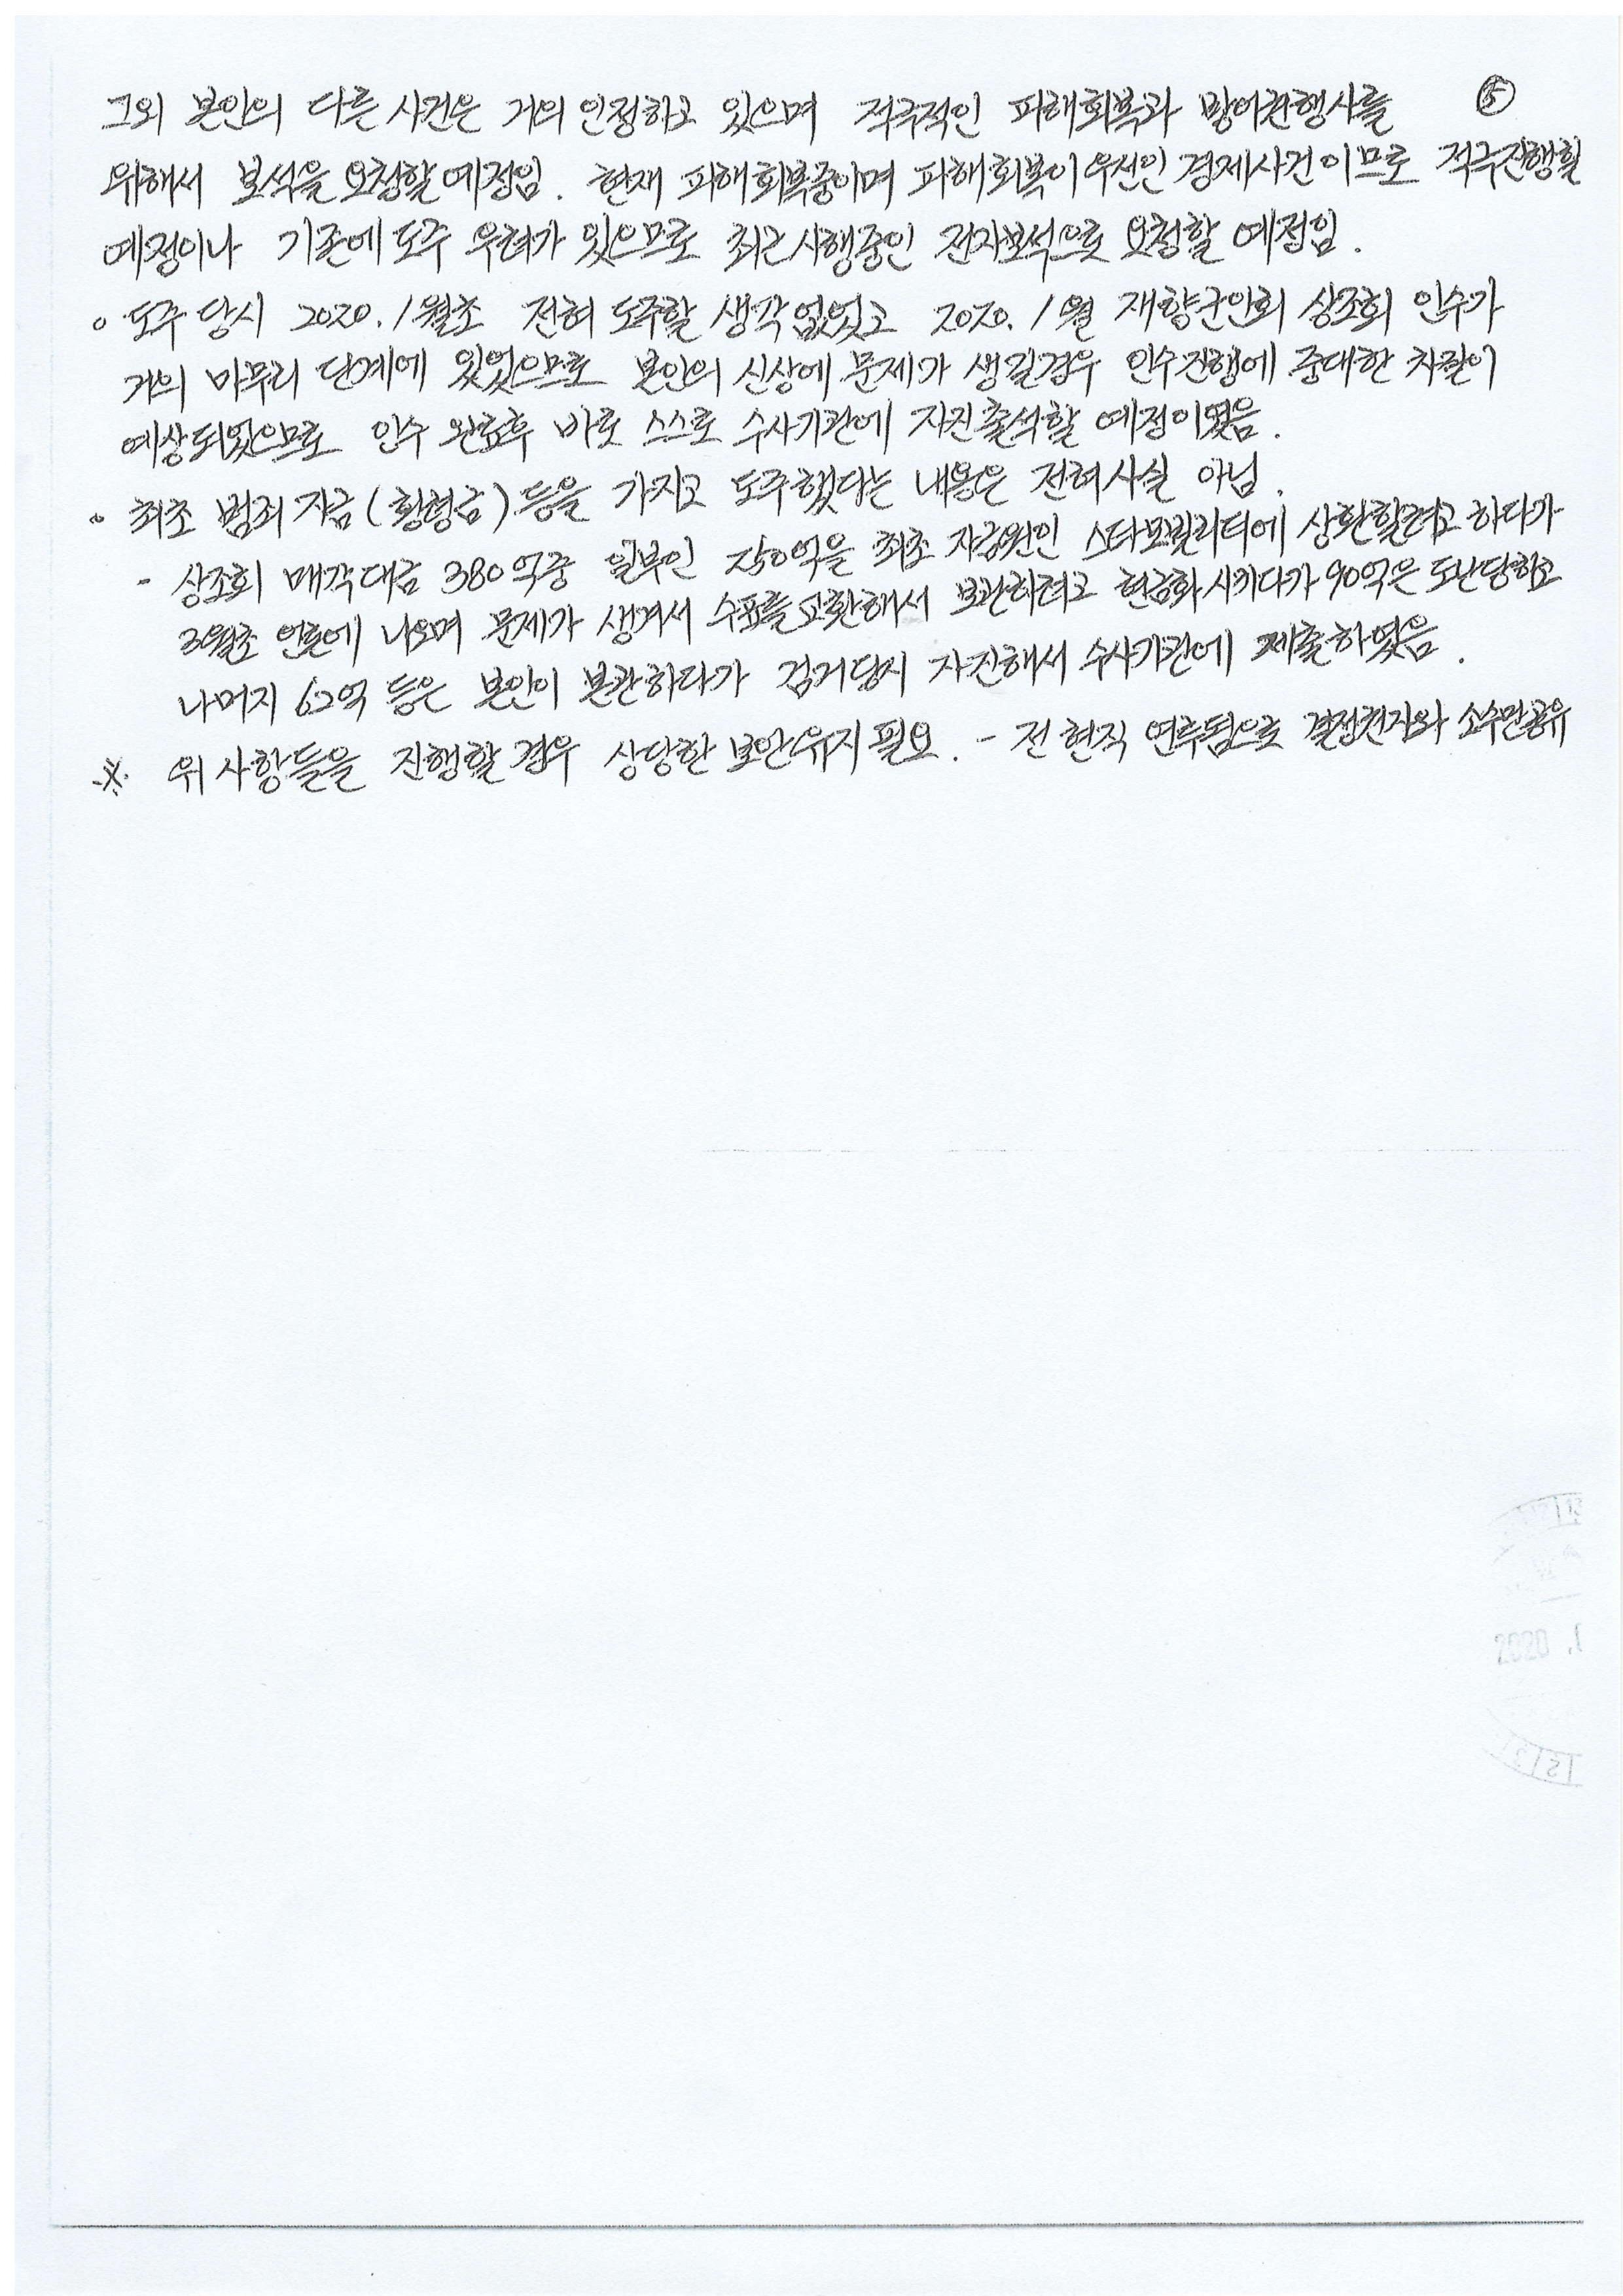 ⑤
그외 본인의 다른 사건은 거의 인정하고 있으며 적극적인 피해회복과 방어권행사를
위해서 보석을 요청할 예정임. 현재 피해회복중이며 피해회복이 우선인 경제사건이므로 적극진행할
예정이나 기존에 도주 우려가 있으므로 최근 시행중인 전자보석으로 요청할 예정임.
◦ 도주 당시 2020. 1월초 전혀 도주할 생각 없었고 2020. 1월 재향군인회 상조회 인수가
거의 마무리 단계에 있었으므로 본인의 신상에 문제가 생길경우 인수진행에 중대한 차질이
예상되었으므로 인수 완료후 바로 스스로 수사기관에 자진출석할 예정이었음.
◦ 최초 범죄자금(횡령금) 등을 가지고 도주했다는 내용은 전혀사실 아님.
- 상조회 매각대금 380억중 일부인 250억을 최초 자금원인 스타모빌리티에 상환할려고 하다가
3월초 언론에 나오며 문제가 생겨서 수표를 교환해서 보관하려고 현금화 시키다가 90억은 도난당하고
나머지 62억 등은 본인이 보관하다가 검거당시 자진해서 수사기관에 제출하였음.
※ 위 사항들을 진행할 경우 상당한 보안유지 필요. - 전현직 연루됨으로 결정권자와 소수만공유
2020 .1